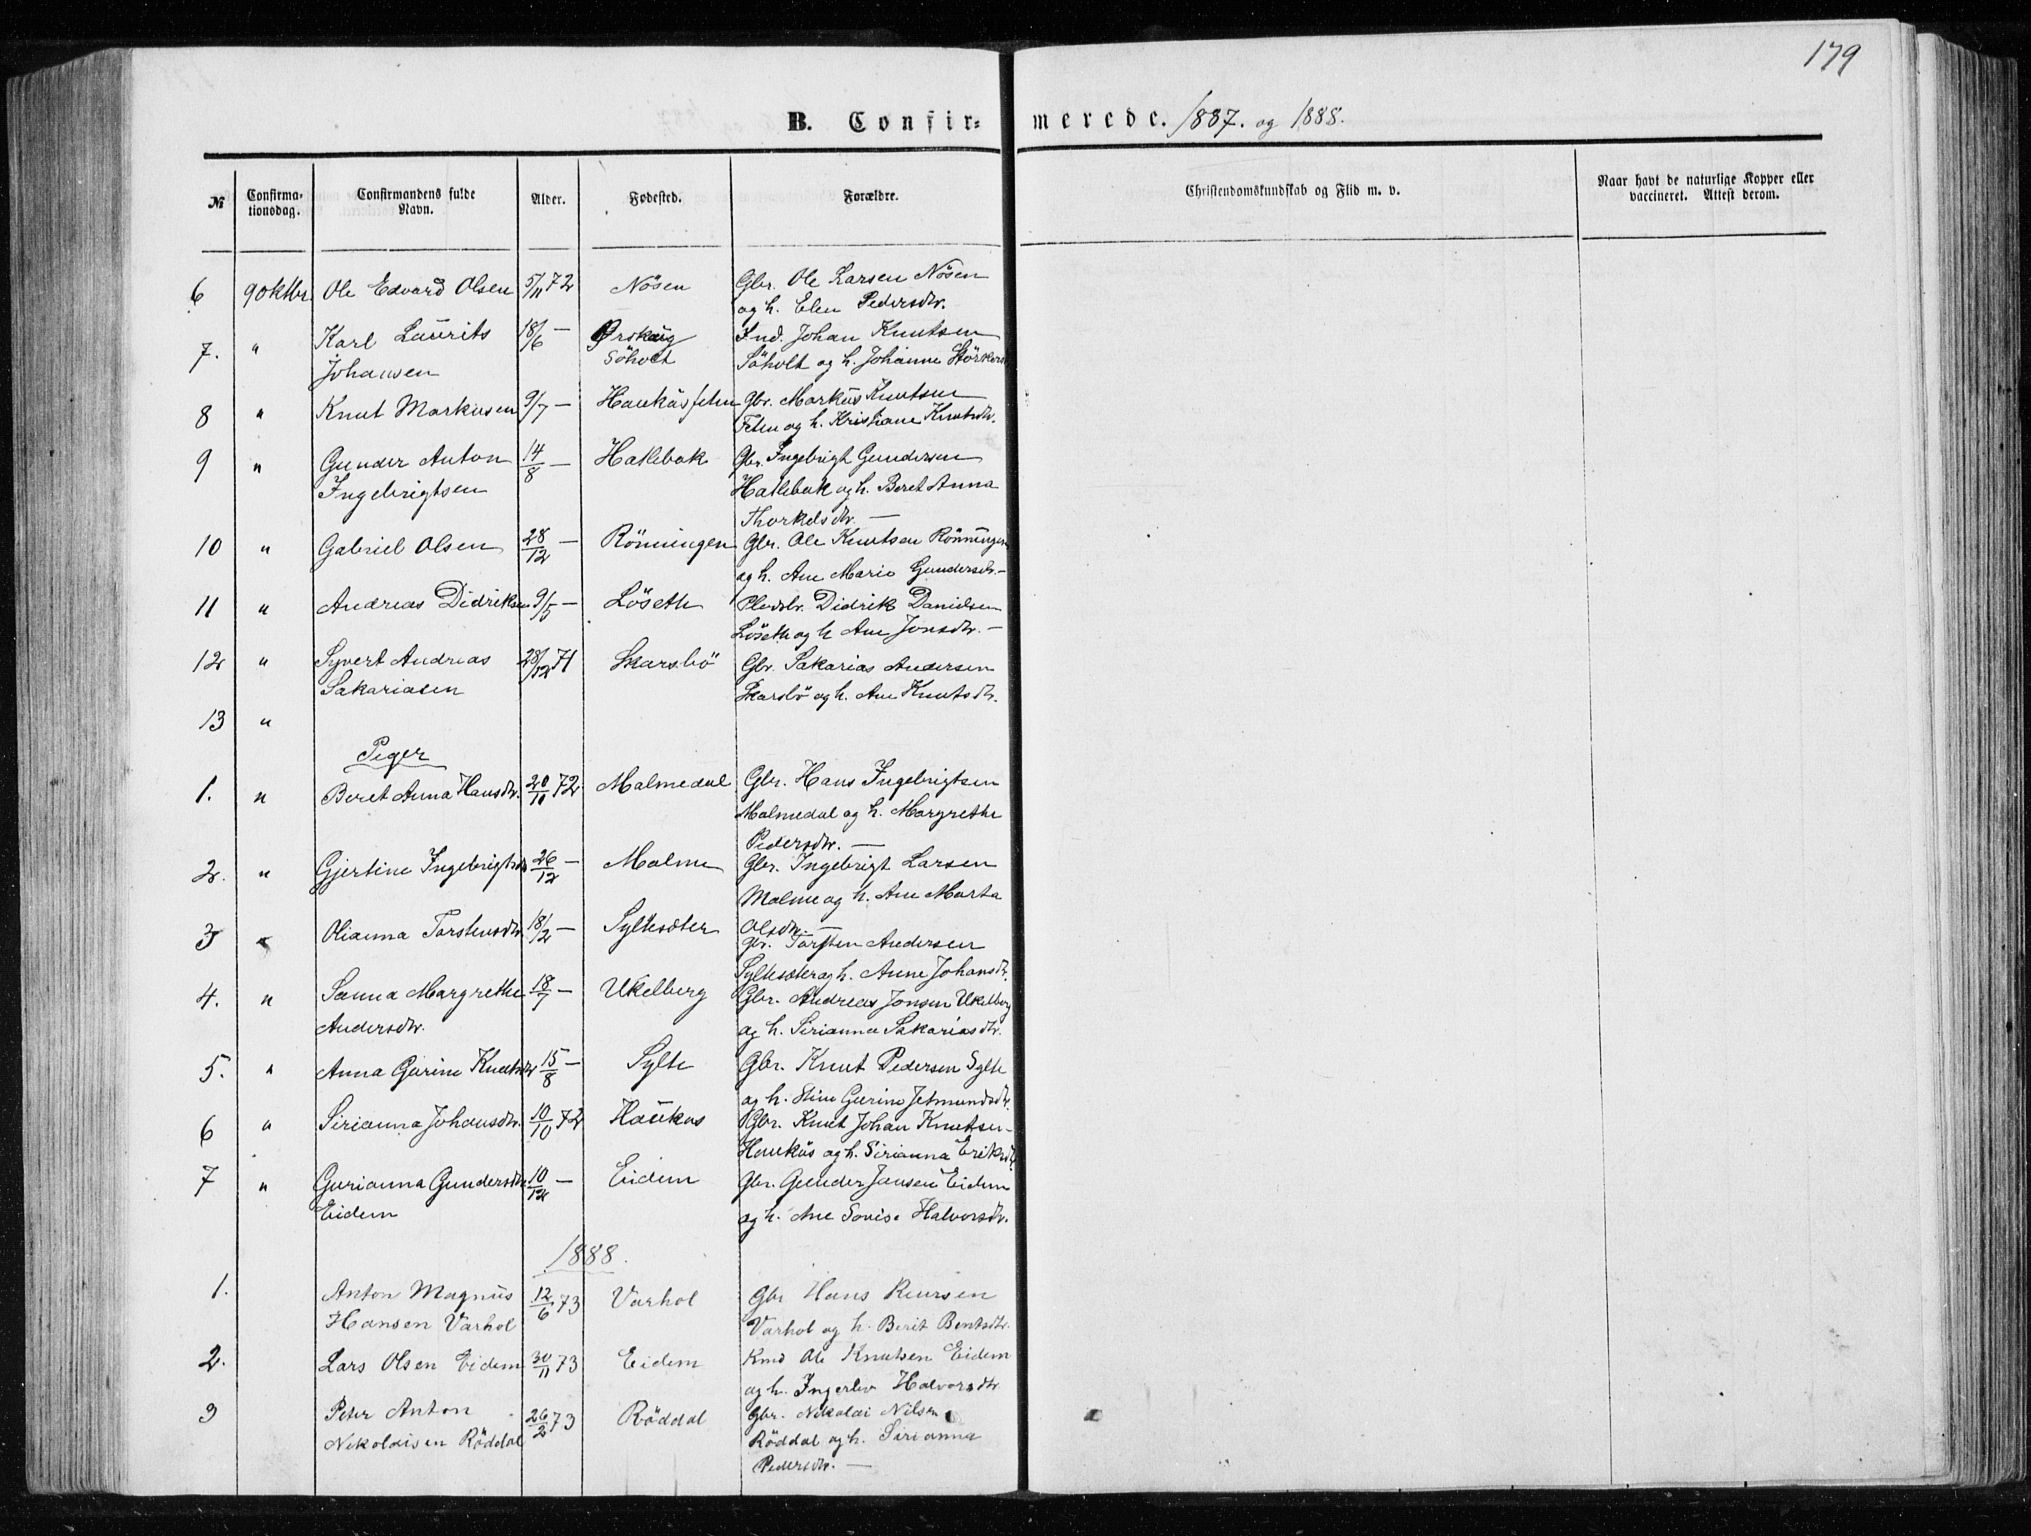 179
B. Confirmerede. 1887. og 1888.
№ Confirmationsdag. Confirmandens fulde Navn. Alder. Fødested. Forældre. Christendomskundskab og Flid m. v. Naar havt de naturlige Kopper eller vaccineret. Attest derom.
6 9 Oktbr. Ole Edvard Olsen 5/11 72 Nösen Gbr. Ole Larsen Nösen
og h. Elen Pedersdtr.
7. " Karl Laurits 18/6 — Ørskoug Ind. Johan Knutsen
Johansen Söholt Söholt og h. Johanne
8 " Knut Markusen 9/7 — Haukåsfeten Gbr. Markus Knutsen
Feten og h. Kristiane Knutsdtr.
9 " Gunder Anton 14/8 — Hatlebak Gbr. Ingebrigt Gundersen
Ingebrigtsen Hatlebak og h. Beret Anna
Thorkelsdtr. —
10 " Gabriel Olsen 28/12 — Rönningen Gbr. Ole Knutsen Rönningen
og h. Ane Marie Gundersdtr. —
11 " Andreas Didriksen 9/5 — Löseth Pladsbr. Didrik Danielsen
Löseth og h Ane Jonsdtr. —
12 " Syvert Andreas 28/12 71 Skarsbö Gbr. Sakarias Andersen
Sakariasen Skarsbö og h. Ane Knutsdtr.
13 "
Piger
1. " Beret Anna Hansdtr. 20/10 72 Malmedal Gbr. Hans Ingebrigtsen
Malmedal og h. Margrethe
Pedersdtr. —
2. " Gjertine Ingebrigtsdtr 26/12 — Malme Gbr. Ingebrigt Larsen
Malme og h. Ane Marta
Olsdtr. —
3 " Olianna Torstensdtr. 18/2 — Syltesæter Gbr. Torsten Andersen
Syltesæter og h. Anne Johansdtr.
4. " Sanna Margrethe 18/7 — Ukelberg Gbr. Andreas Jonsen Ukelberg
Andersdtr. og h. Sirianna Sakariasdtr.
5. " Anna Gurine Knutsdtr 15/8 — Sylte Gbr. Knut Pedersen Sylte
og h. Stine Gurine Jetmundsdtr.
6 " Sirianna Johansdtr. 10/10 72 Haukas Gbr. Knut Johan Knutsen
Haukås og h. Sirianna Eriksdtr.
7 " Gurianna Gundersdtr 10/12 — Eidem Gbr. Gunder Jansen Eidem
Eidem og h. Ane Lovise Halvorsdtr.
1888.
1. Anton Magnus 12/6 73 Varhol Gbr Hans Knursen
Hansen Varhol Varhol og h. Berit Bentsdtr.
2. Lars Olsen Eidem 30/11 73 Eidem Kmd Ole Knutsen Eidem
og h. Ingerlev Halvorsdtr
3 Peter Anton 26/2 73 Röddal Gbr. Nikolai Nilsen
Nikolaisen Röddal Röddal og h. Sirianna
Pedersdtr. —